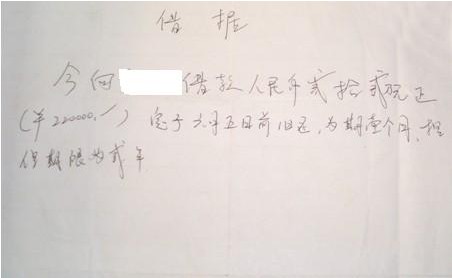 借据
今向 借款人民币贰拾贰万正
(¥220000,-) 定于六月五日前归还,为期壹个月,担
保期限为贰年